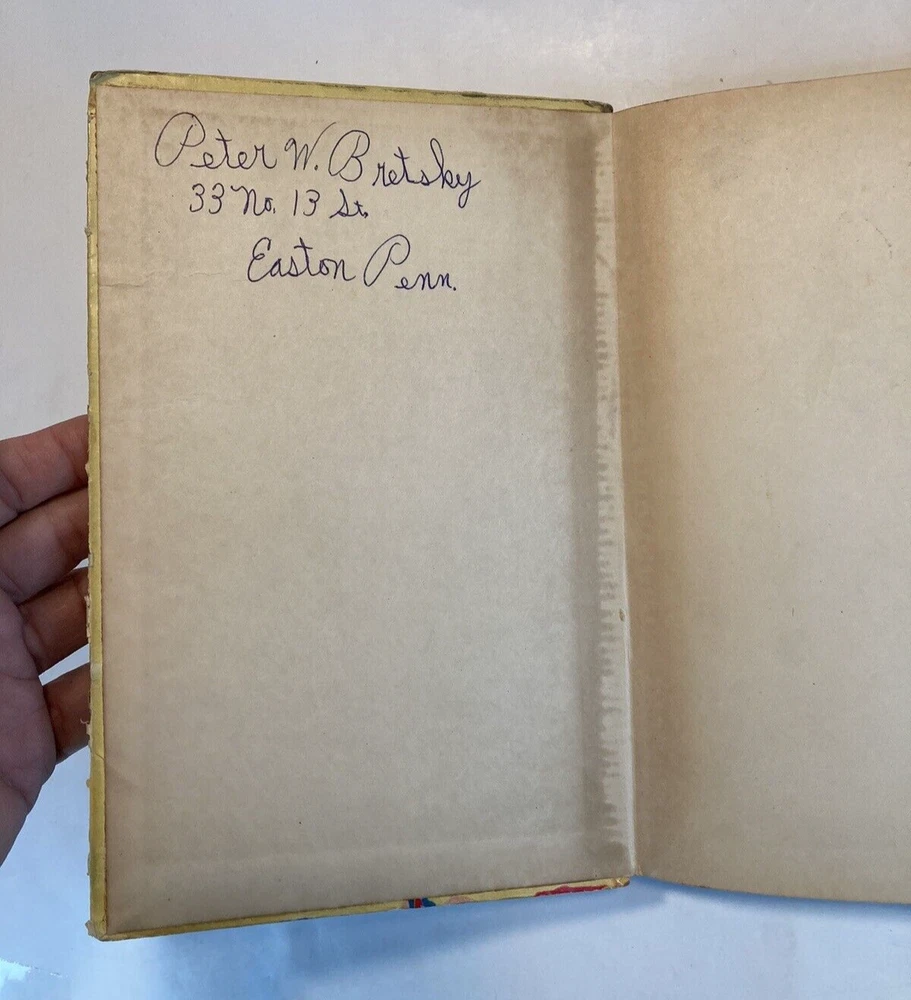 Peter W. Bretsky
33 No. 13 St.
Easton Penn.